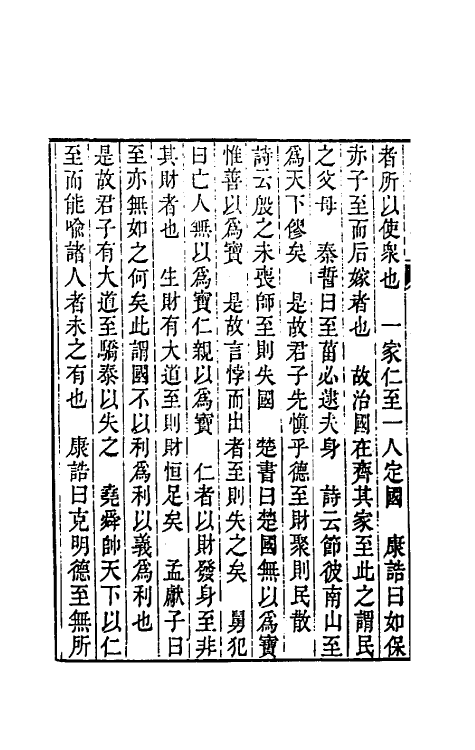 者所以使衆也　一家仁至一人定國　康誥曰如保
赤子至而后嫁者也　故治國在齊其家至此之謂民
之父母　秦誓曰至菑必逮夫身　詩云節彼南山至
爲天下僇矣　是故君子先愼乎德至財聚則民散
詩云殷之未喪師至則失國　楚書曰楚國無以爲寶
惟善以爲寶　是故言悖而出者至則失之矣　舅犯
曰亡人無以爲寶仁親以爲寶　仁者以財發身至非
其財者也　生財有大道至則財恒足矣　孟獻子曰
至亦無如之何矣此謂國不以利爲利以義爲利也
是故君子有大道至驕泰以失之　堯舜帥天下以仁
至而能喩諸人者未之有也　康誥曰克明德至無所